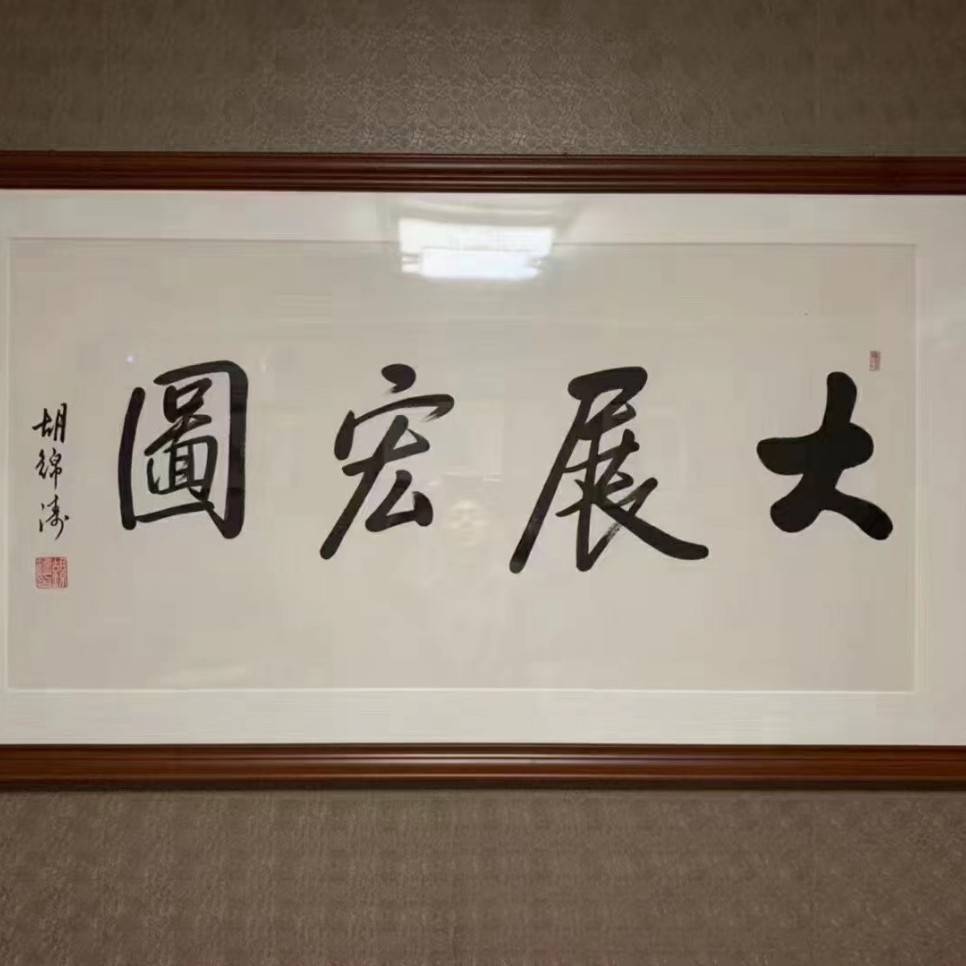 大展宏圖
胡錦濤